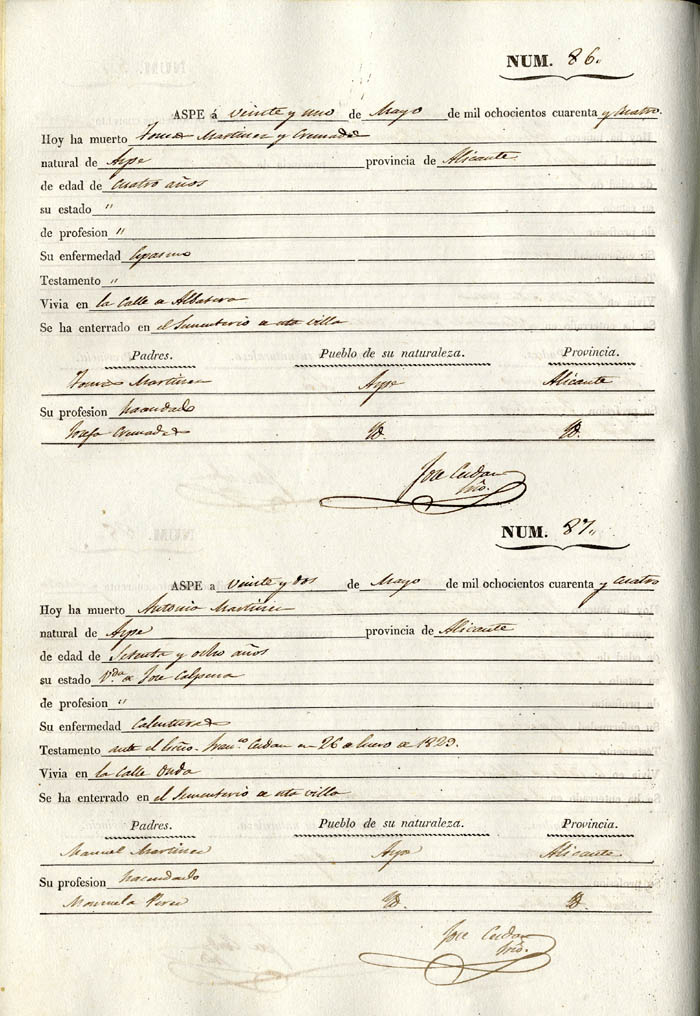 NUM. 86.
ASPE á veinte y uno de Mayo de mil ochocientos cuarenta y cuatro.
Hoy ha muerto Martinez y Cremades
natural de Aspe provincia de Alicante
de edad de cuatro años
su estado "
de profesion "
Su enfermedad
Testamento "
Vivia en la Calle de Albatera
Se ha enterrado en el Sementerio de esta villa
Padres. Pueblo de su naturaleza. Provincia.
Martinez Aspe Alicante
Su profesion hacendado
Josefa Cremades Yd. Yd.
Jose Cerdan
Srio.
NUM. 87.
ASPE a veinte y dos de Mayo de mil ochocientos cuarenta y cuatro
Hoy ha muerto Martinez
natural de Aspe provincia de Alicante
de edad de Setenta y ocho años
su estado Vda. de Jose Calpena
de profesion "
Su enfermedad Calenturas
Testamento ante el Franco. Cerdan en 26 de Enero de 1829.
Vivia en la Calle Onda
Se ha enterrado en el Sementerio de esta villa
Padres. Pueblo de su naturaleza. Provincia.
Manuel Martinez Aspe Alicante
Su profesion hacendado
Manuela Perez Yd. Yd.
Jose Cerdan
Srio.